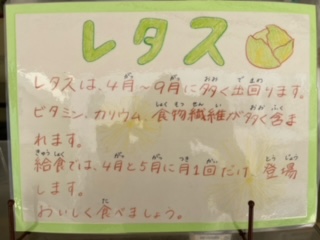 レタス
レタスは、4月〜9月に多く出回ります。
ビタミン、カリウム、食物繊維が多く含ま
れます。
給食では、4月と5月に月1回だけ、登場
します。
おいしく食べましょう。